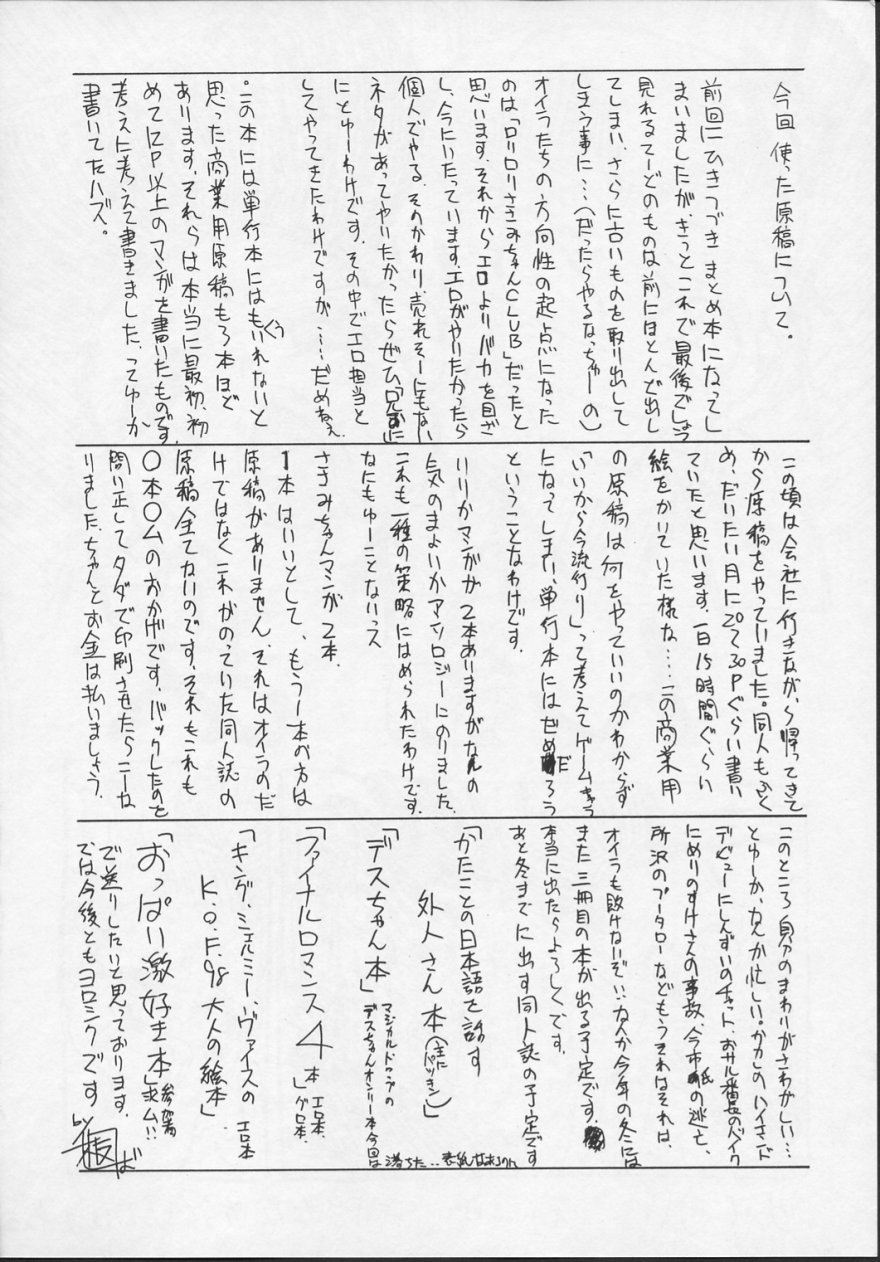 今回使った原稿について。
前回にひきつづきまとめ本になってし
まいましたが、きっとこれで最後でしょう
見れるてーどのものは前にほとんど出し
てしまい、さらに古いものを取り出して
しまう事に…(だったらやるなっちゅーの)
オイラたちの方向性の起点になった
のは「ロリロリささみちゃんCLUB」だったと
思います。それからエロよりバカを目ざ
し、今にいたっています。エロがやりたかったら
個人でやる。そのかわり、売れそーにもない
ネタがあってやりたかったらぜひ
にとゆーわけです。その中でエロ担当と
してやってきたわけですが……だめねぇ
・この本には単行本にはもうくいれないと
思った商業用原稿も3本ほど
あります。それらは本当に最初、初
めて12P以上のマンガを書いたものです。
考えに考えて書きました。ってゆーか
書いてたハズ。
この頃は会社に行きながら帰ってきて
から原稿をやっていました。同人もふく
め、だいたい月に20〜30Pぐらい書い
ていたと思います。一日15時間ぐらい
絵をかいていた様な…。この商業用
の原稿は何をやっていいのかわからず
「いいから今流行り」って考えてゲームキャラ
になってしまい、単行本にはだめだろう
ということなわけです。
いりかマンガが2本ありますがなんの
気のまよいかアンソロジーにのりました。
これも一種の策略にはめられたわけです。
なにもゆーことないっス
ささみちゃんマンガ2本。
1本はいいとして、もう1本の方は
原稿がありません。それはオイラのだ
けではなくこれがのっていた同人誌の
原稿全てないのです。それもこれも
〇本〇ムのおかげです。バックしたのを
問い正してタダで印刷させたらこーな
りました。ちゃんとお金は払いましょう。
このところ自分のまわりがさわがしい…
とゆーか、なんか忙しい。かかしのハイエンド
デビューにしんずいのチャット、おサル番長のバイク
にめりのすけさんの事故、今市の逃亡、
所沢のプータローなどもうそれはそれは、
オイラも敗けないぞ!!なんか今年の冬には
また三冊目の本が出る予定です。
本当に出たらよろしくです。
あと冬までに出す同人誌の予定です
「かたことの日本語を話す
外人さん本(主にパツキン)」
「デスちゃん本」マジカルドロップの
デスちゃんオンリー本今回は落ちた‥
「ファイナルロマンス4本」エロ本、グロ本、
「キング、シェルミー、ヴァイスの
K.O.F.98大人の絵本」エロ本
「おっぱい激好き本」参加者求ム!!
で送りしたいと思っております。
では今後ともヨロシクです
by